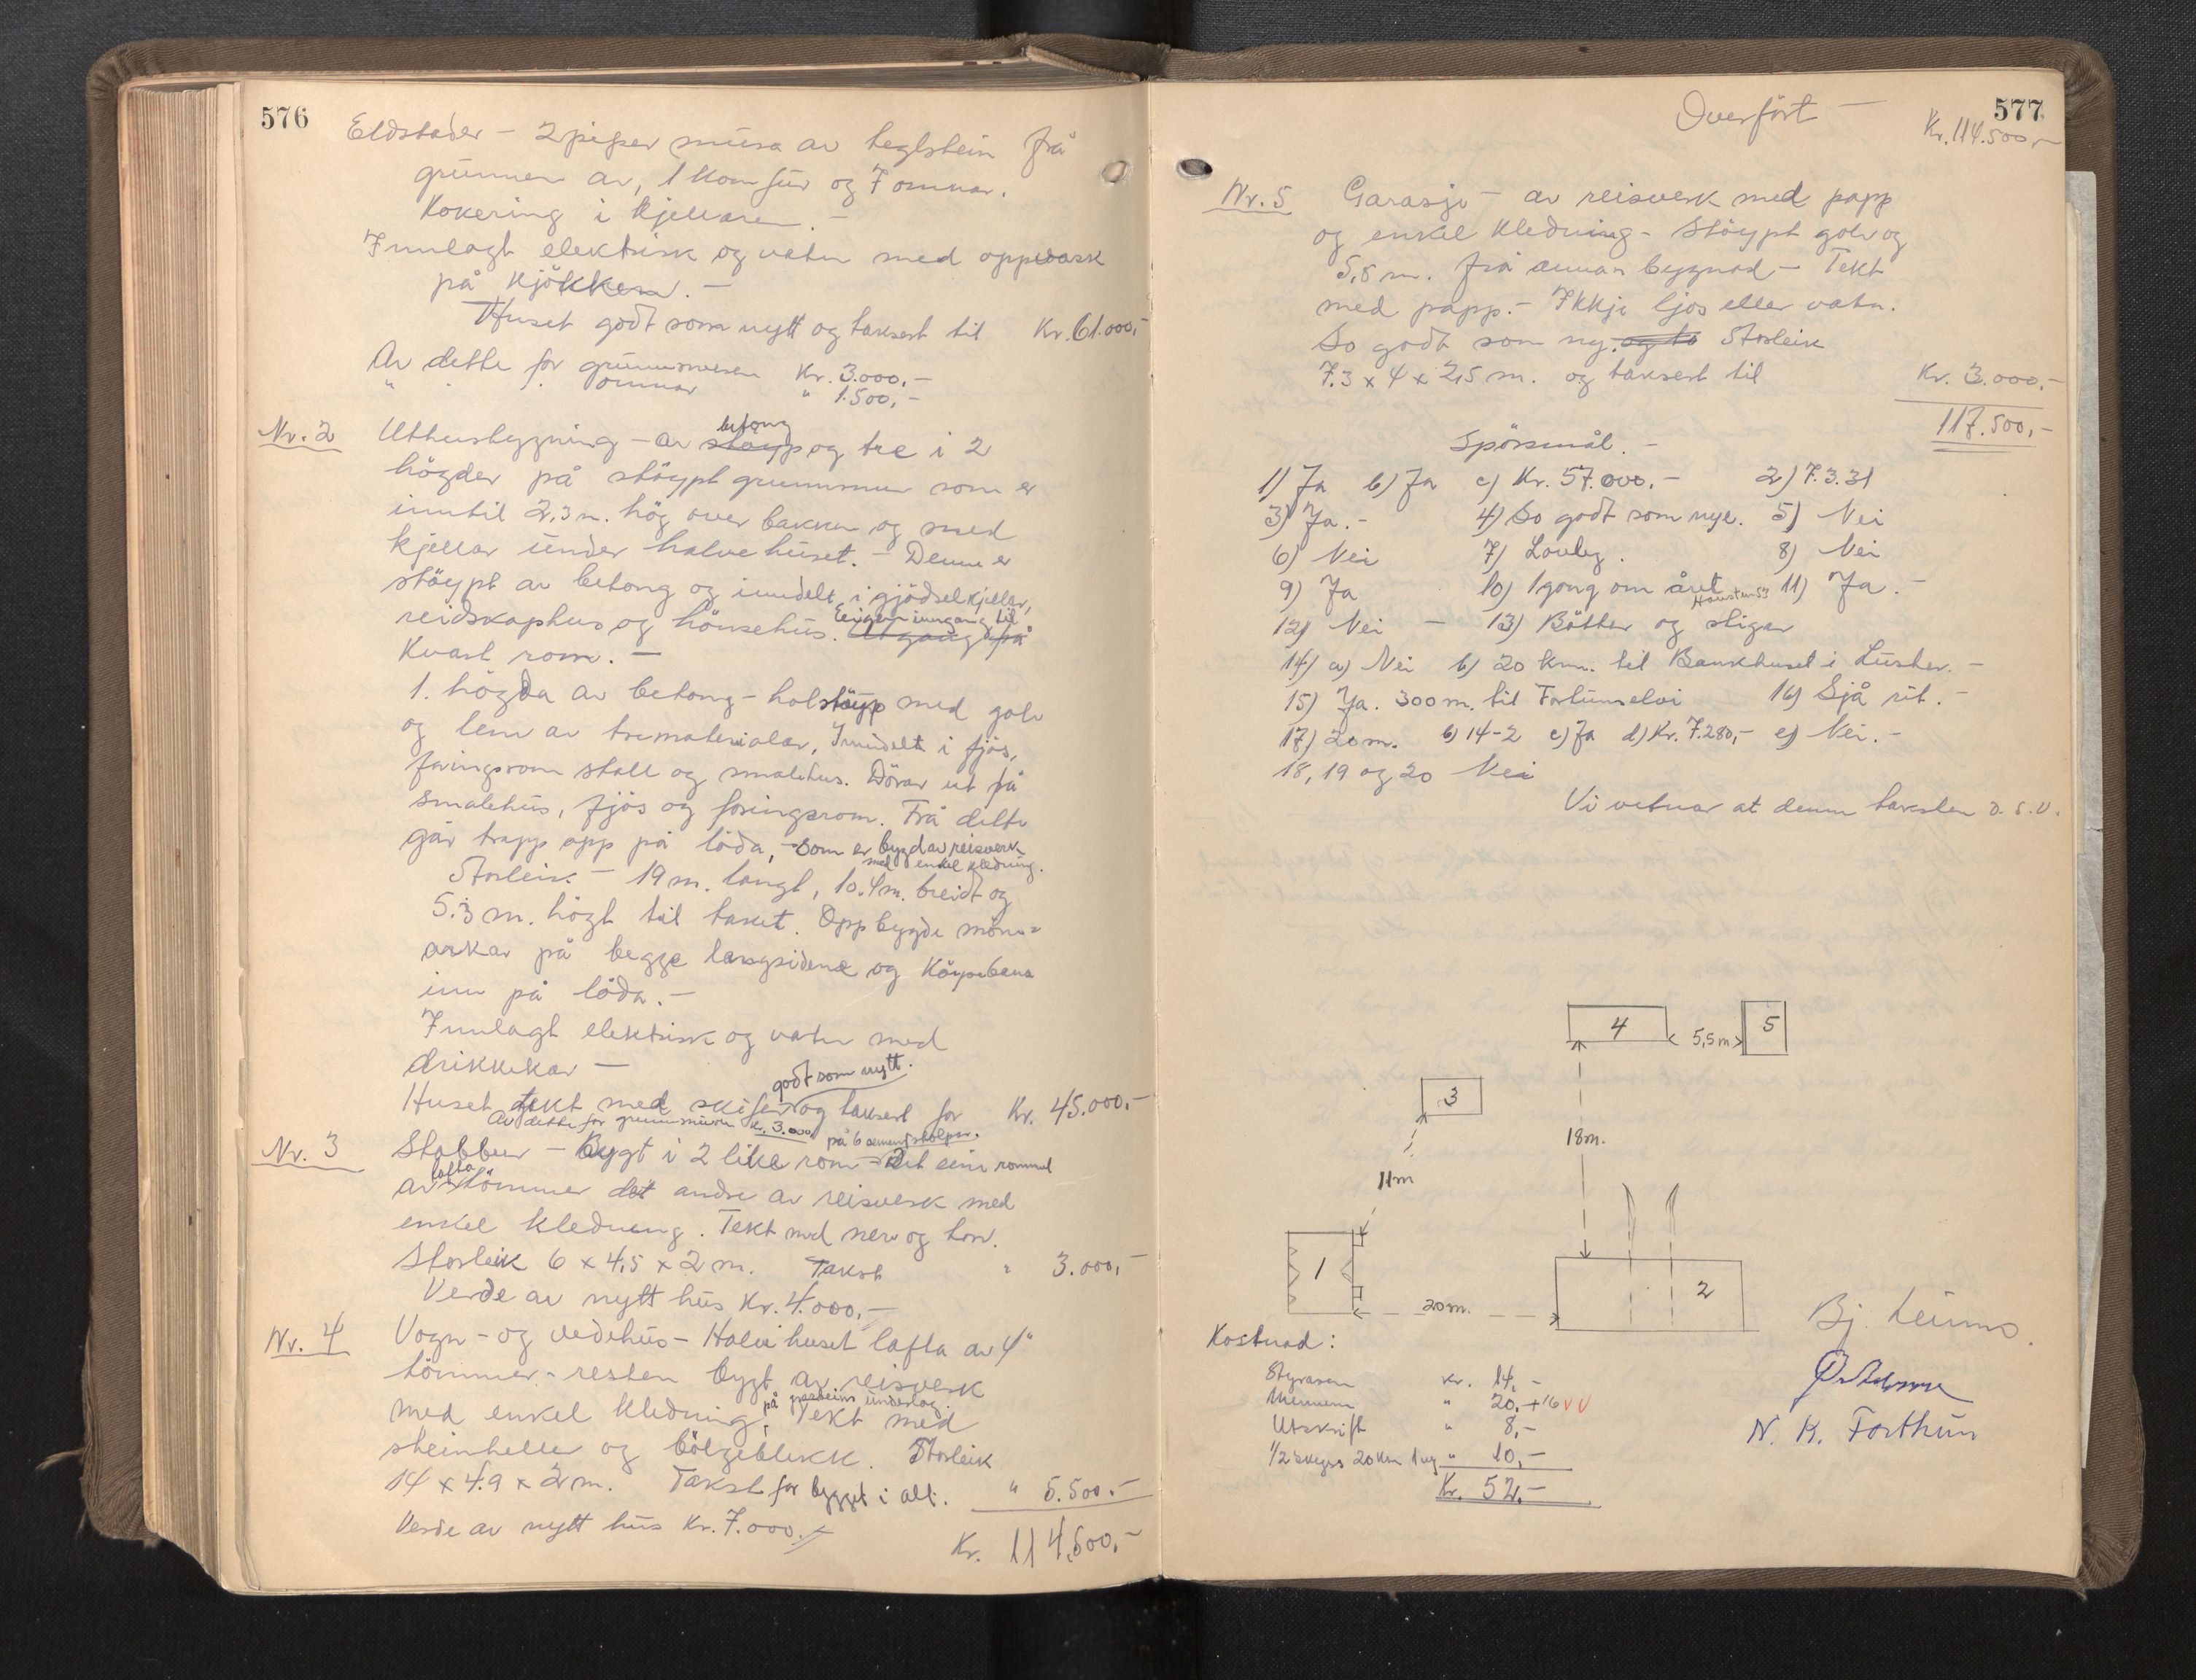 576
Eldstader - 2 piper mura av teglstein frå
grunnen av, 1 komfur og 7 omnar.
Kokering i kjellaren. -
Innlagt elektrisk og vatn med oppvask
på kjökken. -
Huset godt som nytt og taksert til Kr. 61.000,-
Av dette for grunnmuren Kr. 3.000,-
" " " omnar " 1.500,-
Nr. 2 Uthusbygning - av støyp betong og tre i 2
högder på stöypt grunnmur som er
inntil 2,3 m. hög over bakken og med
kjellar under halve huset. - Denne er
stöypt av betong og inndelt i gjödselkjellar,
reidskaphus og hönsehus. Utgang på Eigen inngang til
kvart rom. -
1. högda av betong - holstöyp med golv
og lem av trematerialar, Inndelt i fjös,
foringsrom stall og smalehus. Dörar ut på
smalehus, fjös og foringsrom. Frå dette
går trapp opp på löda, - som er bygd av reisverk
med enkel kledning.
Storleik - 19 m. langt, 10.4 m. breidt og
5.3 m. högt til taket. Oppbygde möne-
arkar på begge langsidene og Köyrebena
inn på löda. -
Innlagt elektrisk og vatn med
drikkekar -
godt som nytt.
Huset tekt med skifer og taksert for Kr. 45.000,-
Av dette for grunnmuren Kr. 3.000,
Nr. 3 Stabbur - Bygt i 2 like rom - på 6 sementstolpar. Det eine rommet
av lafta tömmer det andre av reisverk med
enkel kledning. Tekt med never og torv.
Storleik 6 x 4,5 x 2 m. Takst " 3.000,-
Verde av nytt hus Kr. 4.000,-
Nr. 4 Vogn - og vedehus - Halve huset lafta av 4"
tömmer - resten bygt av reisverk
med enkel kledning, på gråsteins underlag. Tekt med
steinheller og bölgeblikk. Storleik
14 x 4.9 x 2 m. Takst for bygget i alt. " 5.500.-
Verde av nytt hus Kr. 7.000.-
Kr. 114,500,-
577
Overfört - Kr. 114.500,-
Nr. 5 Garasje - av reisverk med papp
og enkel kledning - Stöypt golv og
5,5 m. frå annan bygnad - Tekt
med papp. - Ikkje ljos eller vatn.
So godt som ny. og ta Storleik
7.3 x 4 x 2,5 m. og taksert til Kr. 3.000,-
117.500,-
Spörsmål. -
1) Ja b) Ja c) Kr. 57.000.- 2) 7.3.31
3) Ja. - 4) So godt som nye. 5) Nei
6) Nei 7) Lovleg. 8) Nei
9) Ja 10) 1 gong om året Hausten 53 11) Ja. -
12) Nei - 13) Bötter og stigar
14) a) Nei b) 20 km. til Bankhuset i Luster. -
15) Ja. 300 m. til Fortunselvi 16) Sjå rit. -
17) 20 m. b) 14-2 c) Ja d) Kr. 7.280,- e) Nei. -
18, 19 og 20 Nei
Vi vitnar at denne taksten o.s.v.
4
5,5 m
5
3
18 m.
11 m
1
20 m.
2
Kostnad:
Styraren kr. 14,-
Mennene " 20,- +16 V V
Utskrift " 8,-
1/2 skyss 20 km 1 veg " 10,-
Kr. 52,-
Bj. Leirmo.
N. K. Forthun